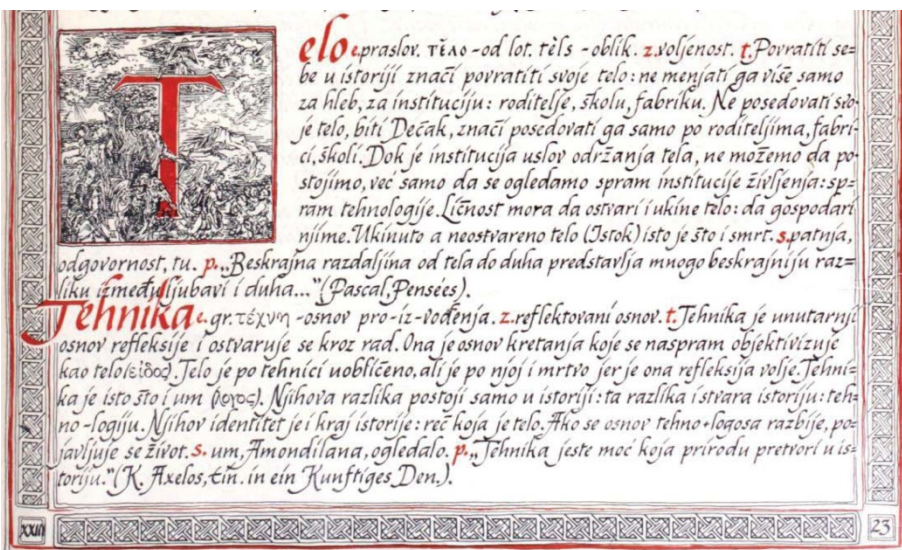 Telo e. praslov. тѣло - od lot. tèls - oblik. z. voljenost. t. Povratiti se-
be u istoriji znači povratiti svoje telo: ne menjati ga više samo
za hleb, za instituciju: roditelje, školu, fabriku. Ne posedovati svo-
je telo, biti Dečak, znači posedovati ga samo po roditeljima, fabri-
ci, školi. Dok je institucija uslov održanja tela, ne možemo da po-
stojimo, već samo da se ogledamo spram institucije življenja: sp-
ram tehnologije. Ličnost mora da ostvari i ukine telo: da gospodari
njime. Ukinuto a neostvareno telo (Istok) isto je što i smrt. s. patnja,
odgovornost, tu. p. „Beskrajna razdaljina od tela do duha predstavlja mnogo beskrajniju raz=
liku između ljubavi i duha..." (Pascal, Pensées).
Tehnika e. gr. τέχνη - osnov pro-iz-vođenja. z. reflektovani osnov. t. Tehnika je unutarnji
osnov refleksije i ostvaruje se kroz rad. Ona je osnov kretanja koje se naspram objektivizuje
kao telo (εἶδος). Telo je po tehnici uobličeno, ali je po njoj i mrtvo jer je ona refleksija volje. Tehni-
ka je isto što i um (λογος). Njihova razlika postoji samo u istoriji: ta razlika i stvara istoriju: teh=
no-logiju. Njihov identitet je i kraj istorije: reč koja je telo. Ako se osnov tehno+logosa razbije, po-
javljuje se život. s. um, Amondilana, ogledalo. p. „Tehnika jeste moć koja prirodu pretvori u is=
toriju." (K. Axelos, Ein. in ein Kunftiges Den.).
XXIII
23